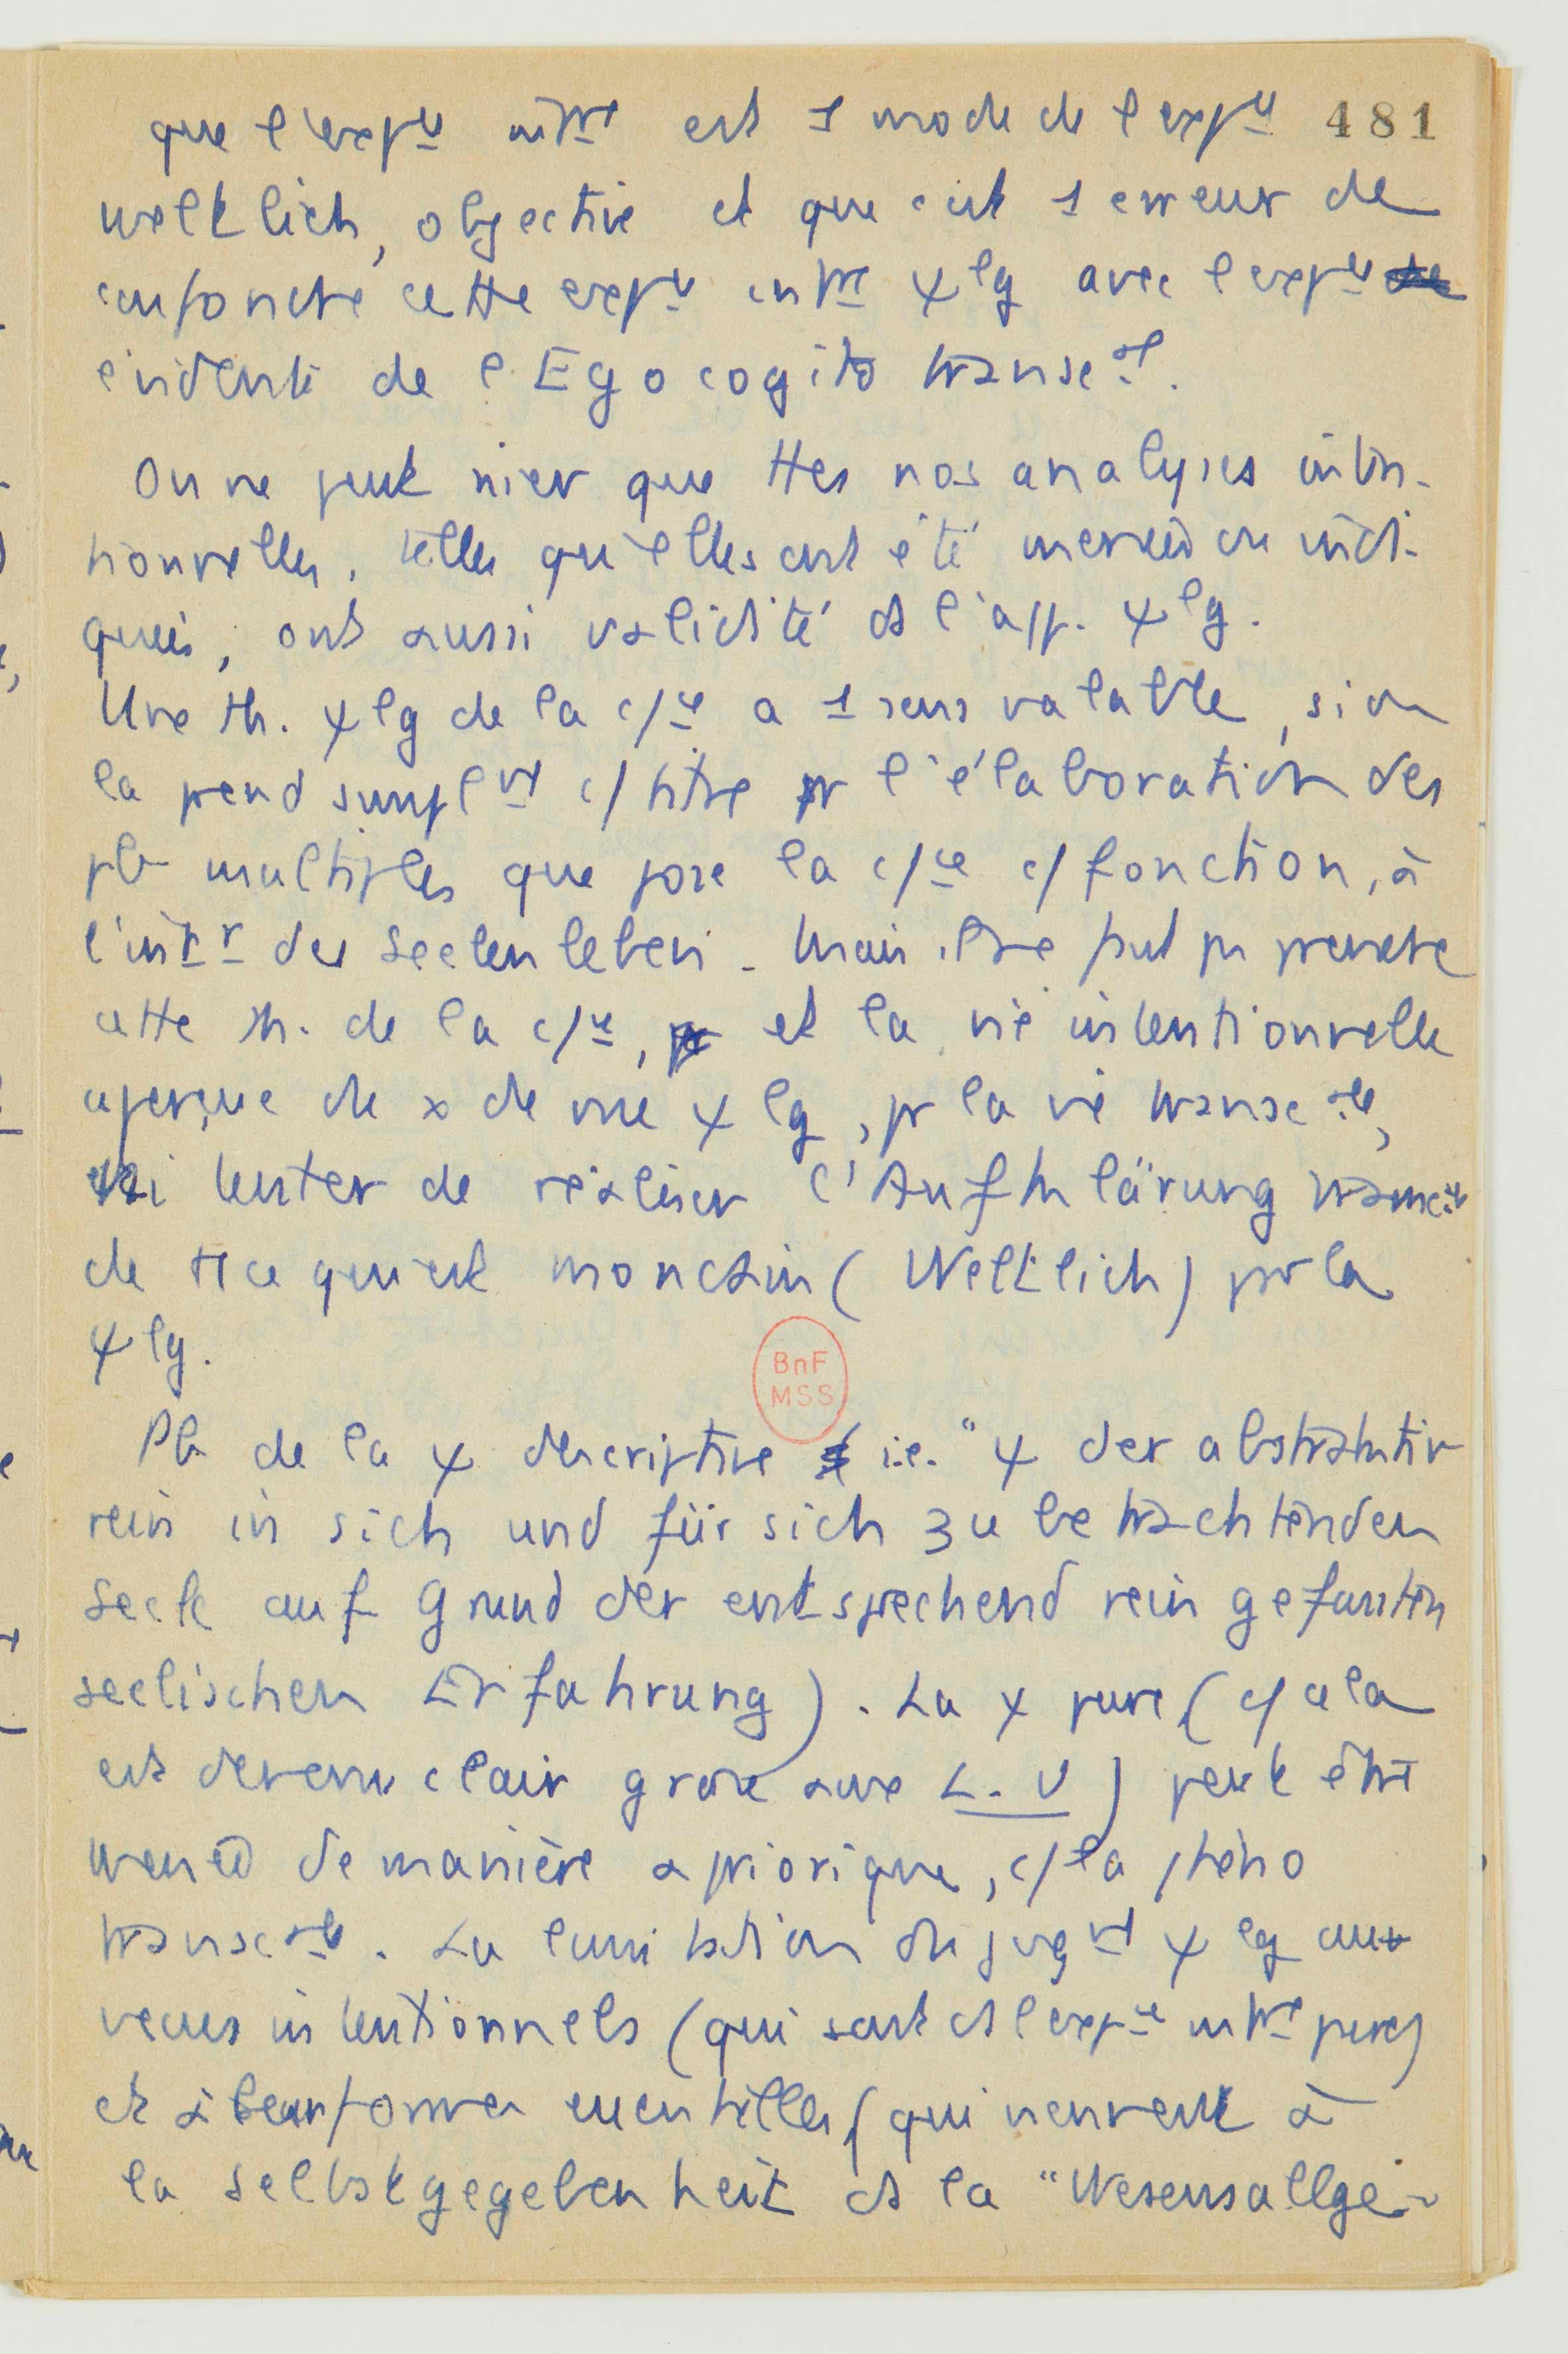 que l'expce intne est 1 mode de l'expce 481
weltlich, objective et que c'est 1 erreur de
confondre cette expce intne ψlg avec l'expce de
évidente de l'Ego cogito transcal.
On ne peut nier que ttes nos analyses inten-
tionnelles, telles qu'elles ont été menées ou indi-
quées, ont aussi validité ds l'app. ψlg.
Une th. ψlg de la c/ce a 1 sens valable, si on
la prend simplnt c/ titre pr l'élaboration des
pb multiples que pose la c/ce c/ fonction, à
l'intr des Seelenleben. Mais il ne faut pas prendre
cette th. de la c/ce, et la vie intentionnelle
aperçue de x de vue ψlg, pr la vie transcale,
ni tenter de réaliser l'Aufklärung transcale
de tt ce qui est mondain (Weltlich) par la
ψlg.
BnF
MSS
Pb de la ψ descriptive i.e. "ψ der abstraktiv
rein in sich und für sich zu betrachtenden
Seele auf Grund der entsprechend rein gefassten
seelischen Erfahrung). La ψ pure (c/ cela
est devenu clair grâce aux L. U) peut être
menée de manière apriorique, c/ la phéno
transcale. La limitation du jugnt ψlg aux
vécus intentionnels (qui sont ds l'expce intne pure)
et à leur forme essentielles (qui viennent à
la Selbstgegebenheit ds la "Wesensallge-